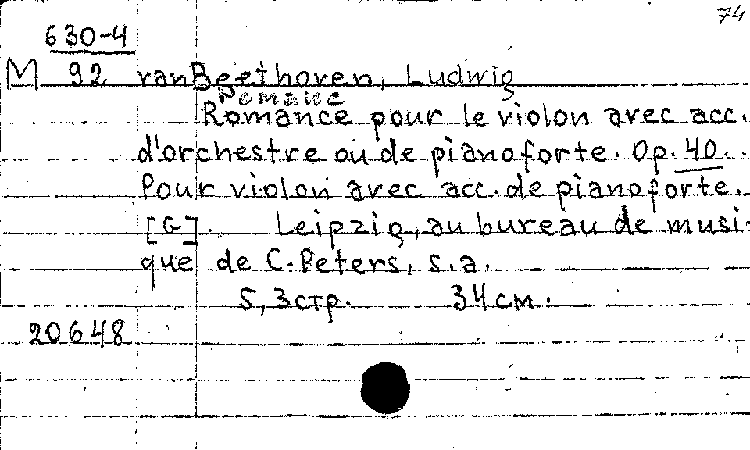 74
630-4
M 92 van Beethoven, Ludwig
Romance
Romance pour le violon avec acc.
d'orchestre ou de pianoforte. Op. 40.
Pour violon avec acc. de pianoforte.
[G]. Leipzig, au bureau de musi-
que de C. Peters, s.a.
5, 3 стр. 34 см.
20648